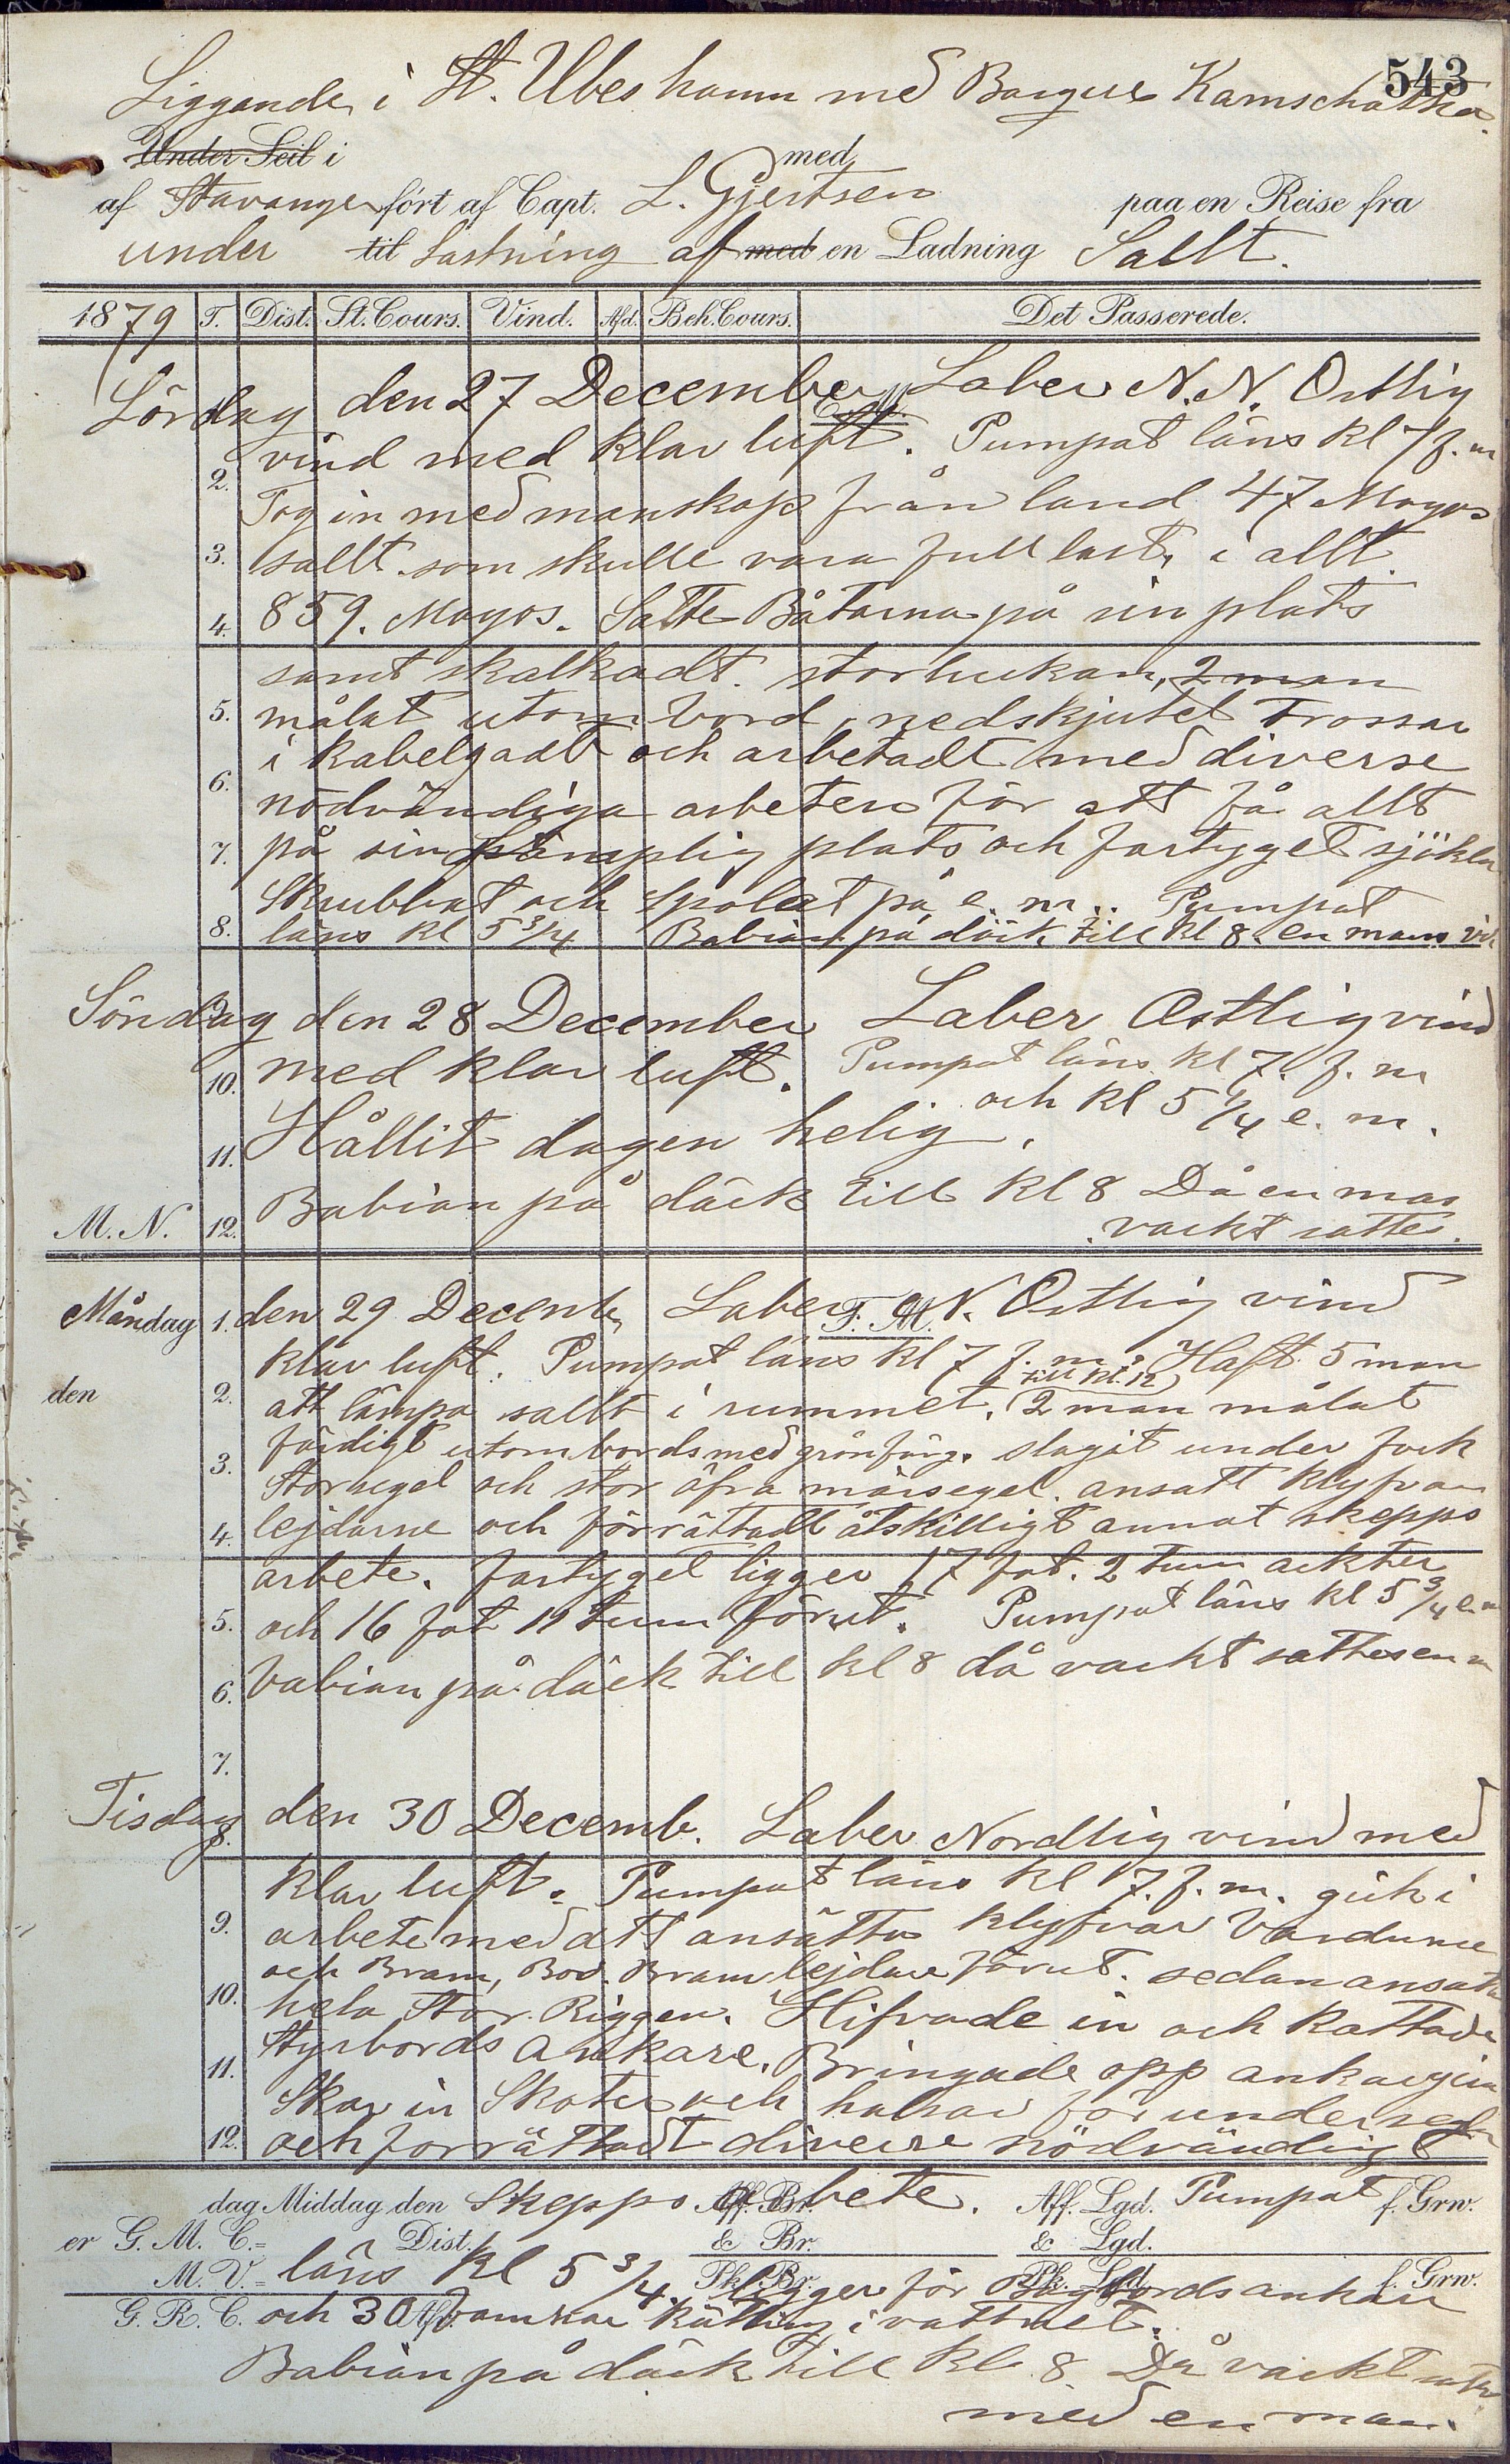 543
Liggande i St. Ubes hamn med Barque Kamschatka.
Under Seil i med
af Stavanger fört af Capt. L. Gjertsen paa en Reise fra
under til Lastning af med en Ladning Sallt.
1879 T. Dist. St. Cours. Vind. Afd. Beh. Cours. Det Passerede.
Lördag den 27 December Laber N.N. Ostlig
vind med klar luft. Pumpat läns kl 7 f.m
2. Tog in med manskap från land 47 Moyos
3. sallt som skulle vara full last, i allt.
4. 859. Moyos. Satte Båtarna på sin plats
samt skalkadt storlukan, 2 man
5. målat utom bord, nedskjutet Trossar
i kabelgadt och arbetadt med diverse
6. nödvändiga arbeten för att få allt
7. på sin lämplig plats och fartyget sjöklar
Skrubbat och spolat på e.m.. Pumpat
8. läns kl 5 3/4 Babian på däck till kl 8. en mans
Söndag den 28 December Laber Ostlig vind
10. med klar luft. Pumpat läns kl 7. f.m
och kl 5 1/4 e.m.
11. Hållit dagen helig.
M. N. 12. Babian på däck till kl 8 Då en mas
vackt sattes.
Måndag 1. den 29 Decemb. Laber N. Ostlig vind
F. M.
klar luft. Pumpat läns kl 7 f.m. Haft 5 man
till kl. 12
den 2. att lämpa sallt i rummet. 2 man målat
färdigt utombords med grönfärg. slagit under fock
3. Storsegel och stor öfra märsegel. ansatt klyfvar
4. lejdarne och förrättadt åtskilligt annat skepps
arbete. fartyget ligger 17 fot. 2 tum ackter
5. och 16 fot 11 tum förut. Pumpat läns kl 5 3/4 e.m
6. babian på däck till kl 8 då vackt sattes en m
7.
Tisdag 8. den 30 Decemb. Laber Nordlig vind med
klar luft. Pumpat läns kl 7. f.m. gick i
9. arbete med att ansätta klyfvar Vardurne
och Bram, Bov. Bram lejdare förut. sedan ansatte
10. hela Stor Riggen. Hifvade in och Kattade
Styrbords ankare. Bringade opp
11. Skar in Skoter och halsar för undersegla
12. och forrättadt diverse nödvändigt
dag Middag den Skepps arbete. Aff. Br. Aff. Lgd. Pumpat f. Grw.
er G. M. C.= Dist. & Br. & Lgd.
M. V.= läns kl 5 3/4. Pk. Br. ligger för Pk. Lgd. bords ankare f. Grw.
G. R. C. och 30 Afd. famnar kätting i vattnet.
Babian på däck till kl. 8 Då vackt
med en man.